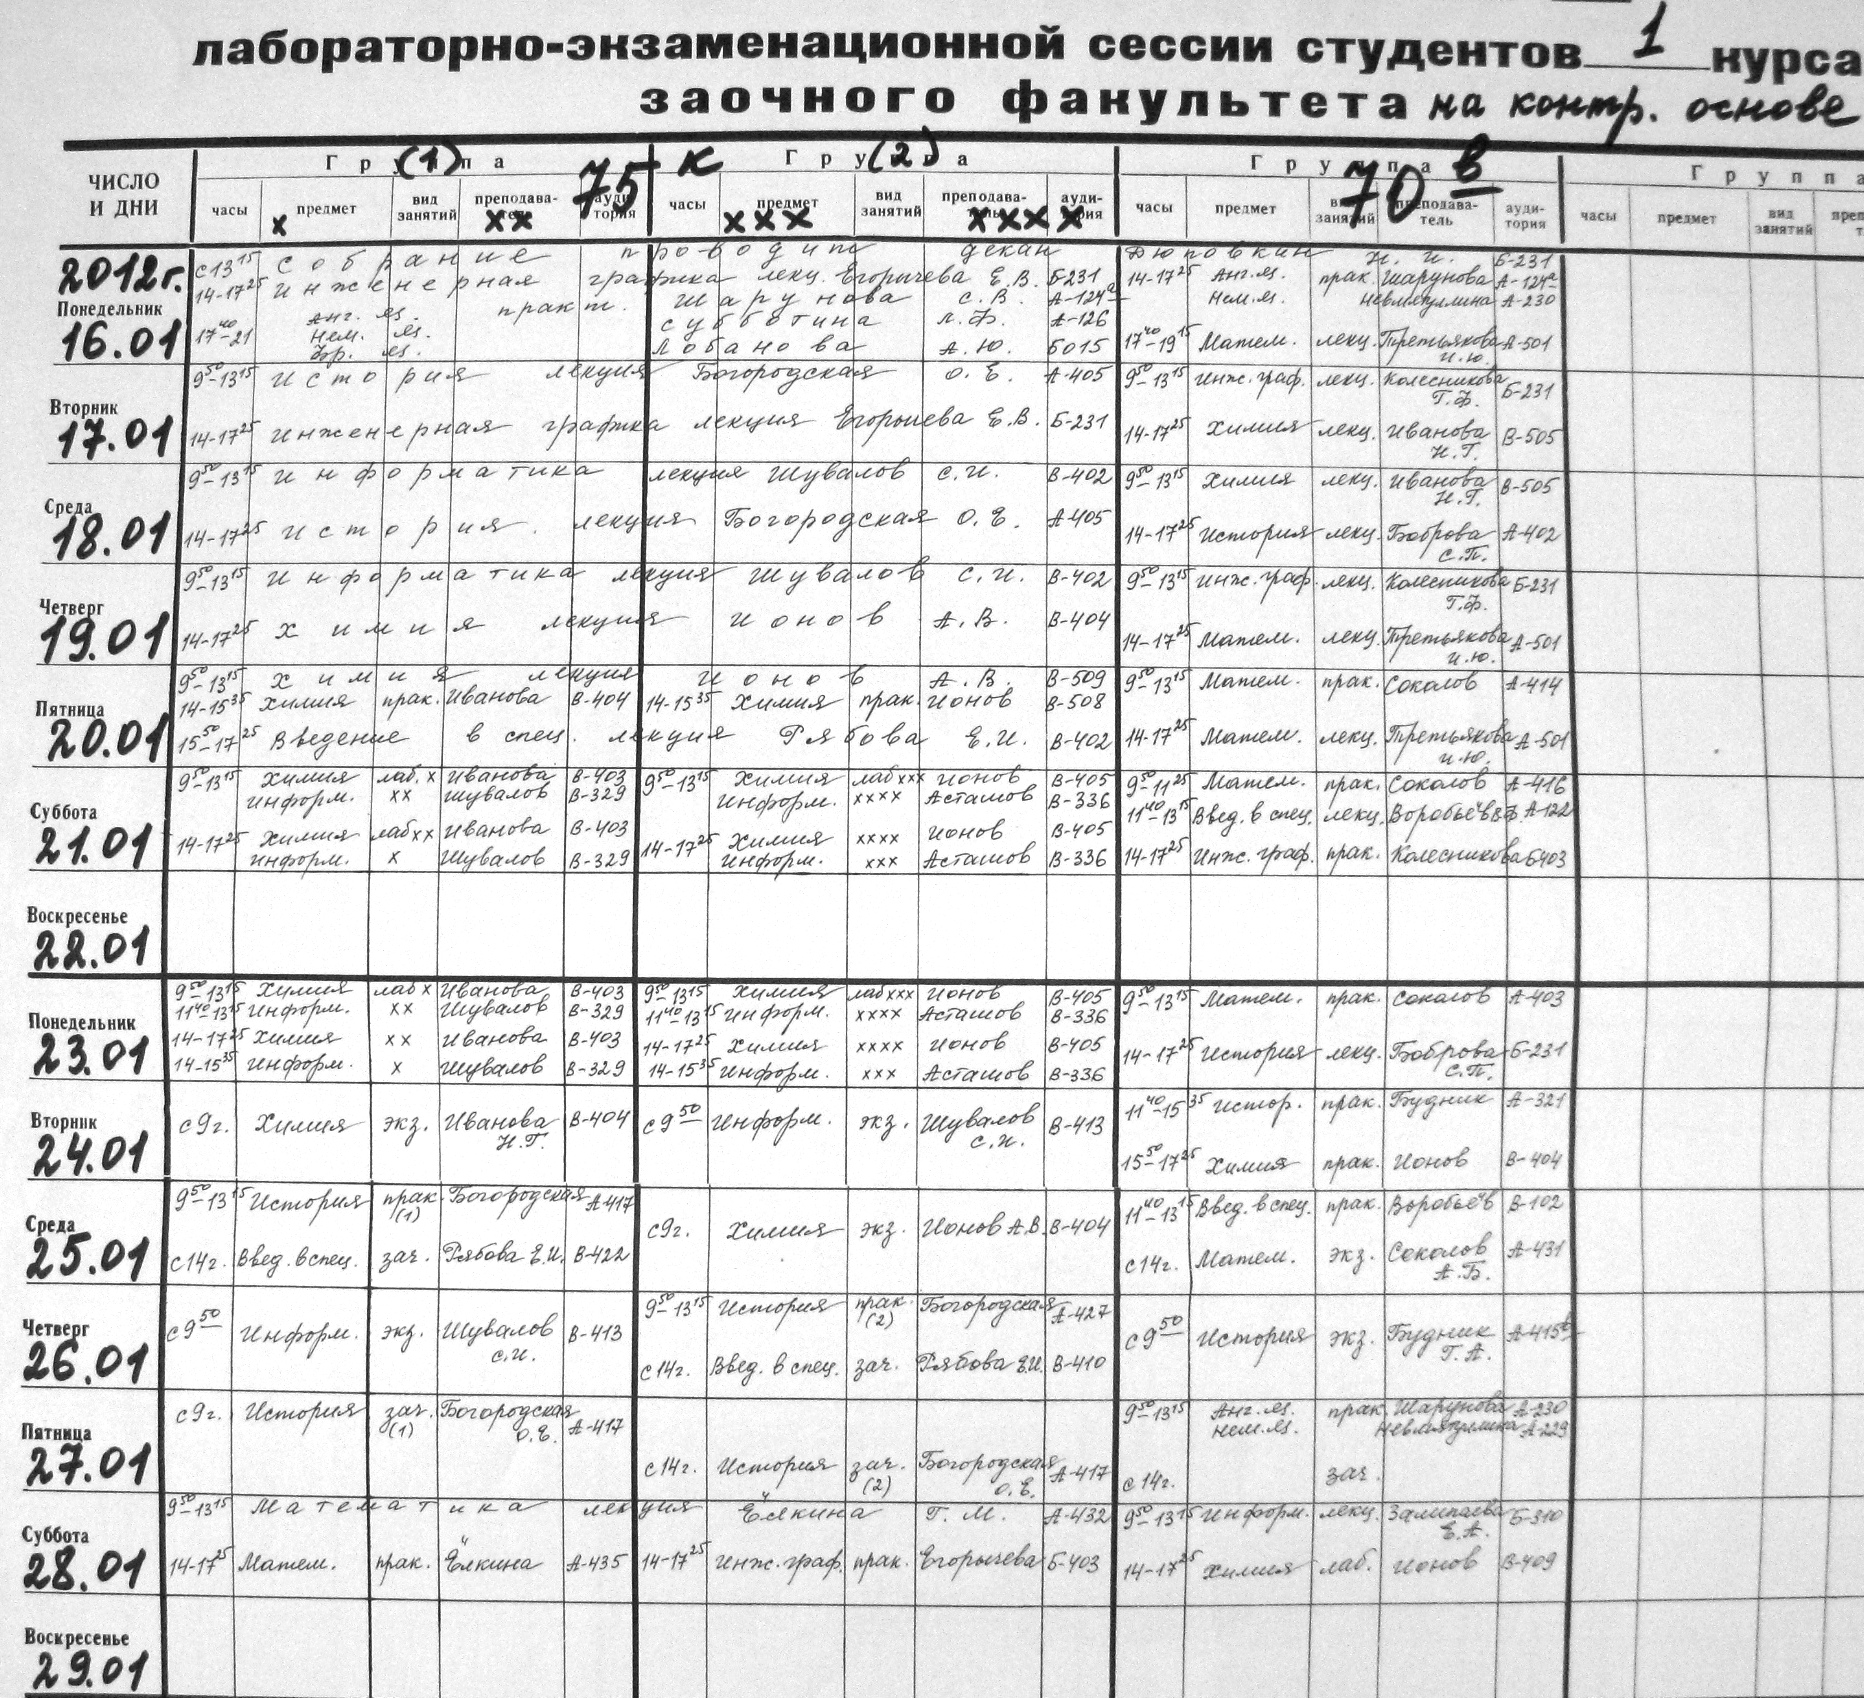 лабораторно-экзаменационной сессии студентов 1 курса
заочного факультета на контр. основе
ЧИСЛО И ДНИ
Гру(1)па 75 к Гру(2)а Группа 70 в Группа
часы предмет вид занятий преподаватель аудитория часы предмет вид занятий преподаватель аудитория часы предмет вид занятий преподаватель аудитория часы предмет вид занятий
х хх ххх хххх
2012г.
Понедельник
16.01
с 13 15 собрание проводит декан Дюповкин Н. И. Б-231
14-17 25 Инженерная графика лекц. Егорычева Е.В. Б-231 14-17 25 Анг. яз. прак. Шарунова А-124а
Анг. яз. практ. Шарунова С.В. А-124а Нем. яз. А-230
17 40-21 Нем. яз. Субботина Л.Ф. А-126
Фр. яз. Лобанова А.Ю. Б015 17 40-19 15 Матем. лекц. Третьякова И.Ю. А-501
Вторник
17.01
9 50-13 15 История лекция Богородская О.Е. А-405 9 50-13 15 Инж. граф. лекц. Колесникова Г.Ф. Б-231
14-17 25 Инженерная графика лекция Егорычева Е.В. Б-231 14-17 25 Химия лекц. Иванова Н.Г. В-505
Среда
18.01
9 50-13 15 Информатика лекция Шувалов С.И. В-402 9 50-13 15 Химия лекц. Иванова Н.Г. В-505
14-17 25 История лекция Богородская О.Е. А-405 14-17 25 История лекц. Боброва С.П. А-402
Четверг
19.01
9 50-13 15 Информатика лекция Шувалов С.И. В-402 9 50-13 15 Инж. граф. лекц. Колесникова Г.Ф. Б-231
14-17 25 Химия лекция Ионов А.В. В-404 14-17 25 Матем. лекц. Третьякова И.Ю. А-501
Пятница
20.01
9 50-13 15 Химия лекция Ионов А.В. В-509 9 50-13 15 Матем. прак. Соколов А-414
14-15 35 Химия прак. Иванова В-404 14-15 35 Химия прак. Ионов В-508
15 50-17 25 Введение в спец. лекция Рябова Е.И. В-402 14-17 25 Матем. лекц. Третьякова И.Ю. А-501
Суббота
21.01
9 50-13 15 Химия лаб. х Иванова В-403 9 50-13 15 Химия лаб ххх Ионов В-405 9 50-11 25 Матем. прак. Соколов А-416
Информ. хх Шувалов В-329 Информ. хххх Асташов В-336 11 40-13 15 Введ. в спец. лекц. Воробьёв А-122
14-17 25 Химия лаб хх Иванова В-403 14-17 25 Химия хххх Ионов В-405
Информ. х Шувалов В-329 Информ. ххх Асташов В-336 14-17 25 Инж. граф. прак. Колесникова Б403
Воскресенье
22.01
Понедельник
23.01
9 50-13 15 Химия лаб х Иванова В-403 9 50-13 15 Химия лаб ххх Ионов В-405 9 50-13 15 Матем. прак. Соколов А-403
11 40-13 15 Информ. хх Шувалов В-329 11 40-13 15 Информ. хххх Асташов В-336
14-17 25 Химия хх Иванова В-403 14-17 25 Химия хххх Ионов В-405 14-17 25 История лекц. Боброва С.П. Б-231
14-15 35 Информ. х Шувалов В-329 14-15 35 Информ. ххх Асташов В-336
Вторник
24.01
с 9г. Химия экз. Иванова Н.Г. В-404 с 9 50 Информ. экз. Шувалов С.И. В-413 11 40-15 35 Истор. прак. Будник А-321
15 50-17 25 Химия прак. Ионов В-404
Среда
25.01
9 50-13 15 История прак. (1) Богородская А-417 с 9г. Химия экз. Ионов А.В. В-404 11 40-13 15 Введ. в спец. прак. Воробьёв В-102
с 14г. Введ. в спец. зач. Рябова Е.И. В-422 с 14г. Матем. экз. Соколов А.Б. А-431
Четверг
26.01
с 9 50 Информ. экз. Шувалов С.И. В-413 9 50-13 15 История прак. (2) Богородская А-427 с 9 50 История экз. Будник Г.А. А-415
с 14г. Введ. в спец. зач. Рябова Е.И. В-410
Пятница
27.01
с 9г. История зач. (1) Богородская О.Е. А-417 9 50-13 15 Анг. яз. прак. Шарунова А-230
Нем. яз. А-229
с 14г. История зач. (2) Богородская О.Е. А-417 с 14г. зач.
Суббота
28.01
9 50-13 15 Математика лекция Ёлкина Г.М. А-432 9 50-13 15 Информ. лекц. Е.А. Б-310
14-17 25 Матем. прак. Ёлкина А-435 14-17 25 Инж. граф. прак. Егорычева Б-403 14-17 25 Химия лаб. Ионов В-409
Воскресенье
29.01